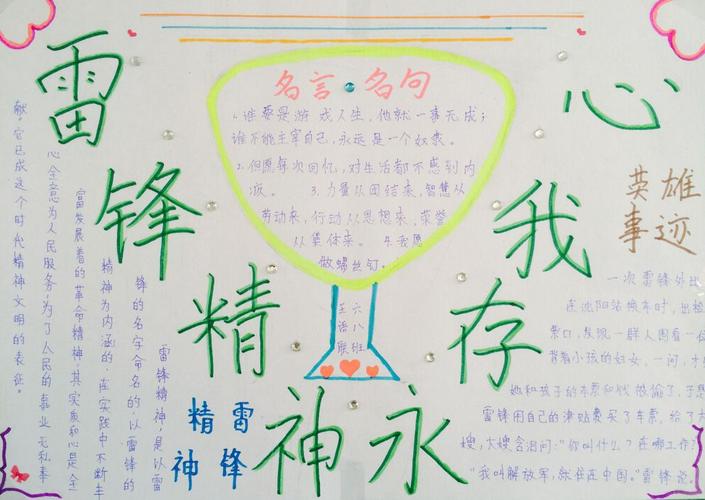 雷锋精神永存我心
名言·名句
1、谁要是游戏人生，他就一事无成；
谁不能主宰自己，永远是一个奴隶。
2、但愿每次回忆，对生活都不感到内
疚。 3、力量从团结来，智慧从
劳动来，行动从思想来，荣誉
从集体来。 4、我愿
做螺丝钉。
六八班
王语联
雷锋精神
雷锋精神，是以雷
锋的名字命名的以雷锋的
精神为内涵的、在实践中不断丰
富发展着的革命精神，其实质和心是全
心全意为人民服务，为了人民的事业无私奉
献。它已成这个时代精神文明的表征。
英雄
事迹
一次雷锋外出
在沈阳站换车时，出检
票口，发现一群人围看一个
背着小孩的妇女，一问，才
她和孩子的车票和钱被偷了，于是
雷锋用自己的津贴费买了车票，给了大
嫂，大嫂含泪问：“你叫什么？在哪工作？
“我叫解放军，就住在中国。”雷锋说。